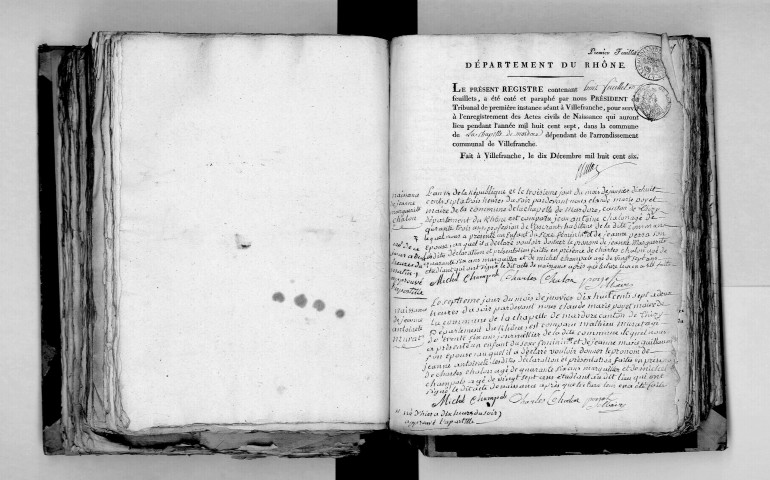 Premier Feuillet
DÉPARTEMENT DU RHÔNE.
LE PRÉSENT REGISTRE contenant trois feuillets
feuillets, a été coté et paraphé par nous PRÉSIDENT du
Tribunal de première instance séant à Villefranche, pour servir
à l'enregistrement des Actes civils de Naissance qui auront
lieu pendant l'année mil huit cent sept, dans la commune
de La chapelle de mardore dépendant de l'arrondissement
communal de Villefranche.
Fait à Villefranche, le dix Décembre mil huit cent six.
naissance
de jeanne
marguerite
chalon
L'an de la République et le troisième jour du mois de janvier dix huit
cents sept a trois heures du soir pardevant nous claude marie poyet
maire de la commune de la chapelle de Mardore, canton de Thizy
département du Rhône est comparu jean antoine chalon agé de
quarante trois ans profession de habitant de la dite commune
lequel nous a présenté un Enfant du sexe féminin et de jeanne son
épouse, auquel il a déclaré vouloir donner le prenom de jeanne Marguerite
les dites déclaration et présentation faites en présence de charles chalon agé de
quarante six ans marguillier et de michel champale agé de vingt sept ans
étudiant qui ont signé le dit acte de naissance après que lecture leur en a été faite
Michel Champale Charles Chalon poyet
Maire
naissance
de jeanne
antoinette
murat
Le septieme jour du mois de janvier dix huit cents sept a deux
heures du soir pardevant nous claude marie poyet maire de
la commune de la chapelle de mardore canton de Thizy
Département du Rhône est comparu mathieu murat agé
de trente six ans journallier de la dite commune lequel nous
a présenté un enfant du sexe féminin et de jeanne marie guillermet
son épouse auquel il a déclaré vouloir donner le prenom de
jeanne antoinette les dites déclaration et présentation faites en présence
de charles chalon agé de quarante six ans marguillier et de michel
champale agé de vingt sept ans étudiant au dit lieu qui ont
signé le dit acte de naissance après que lecture leur en a été faite
Michel Champale Charles Chalon poyet
Maire
né d'hier a dix heures du soir
approuvé l'apostille